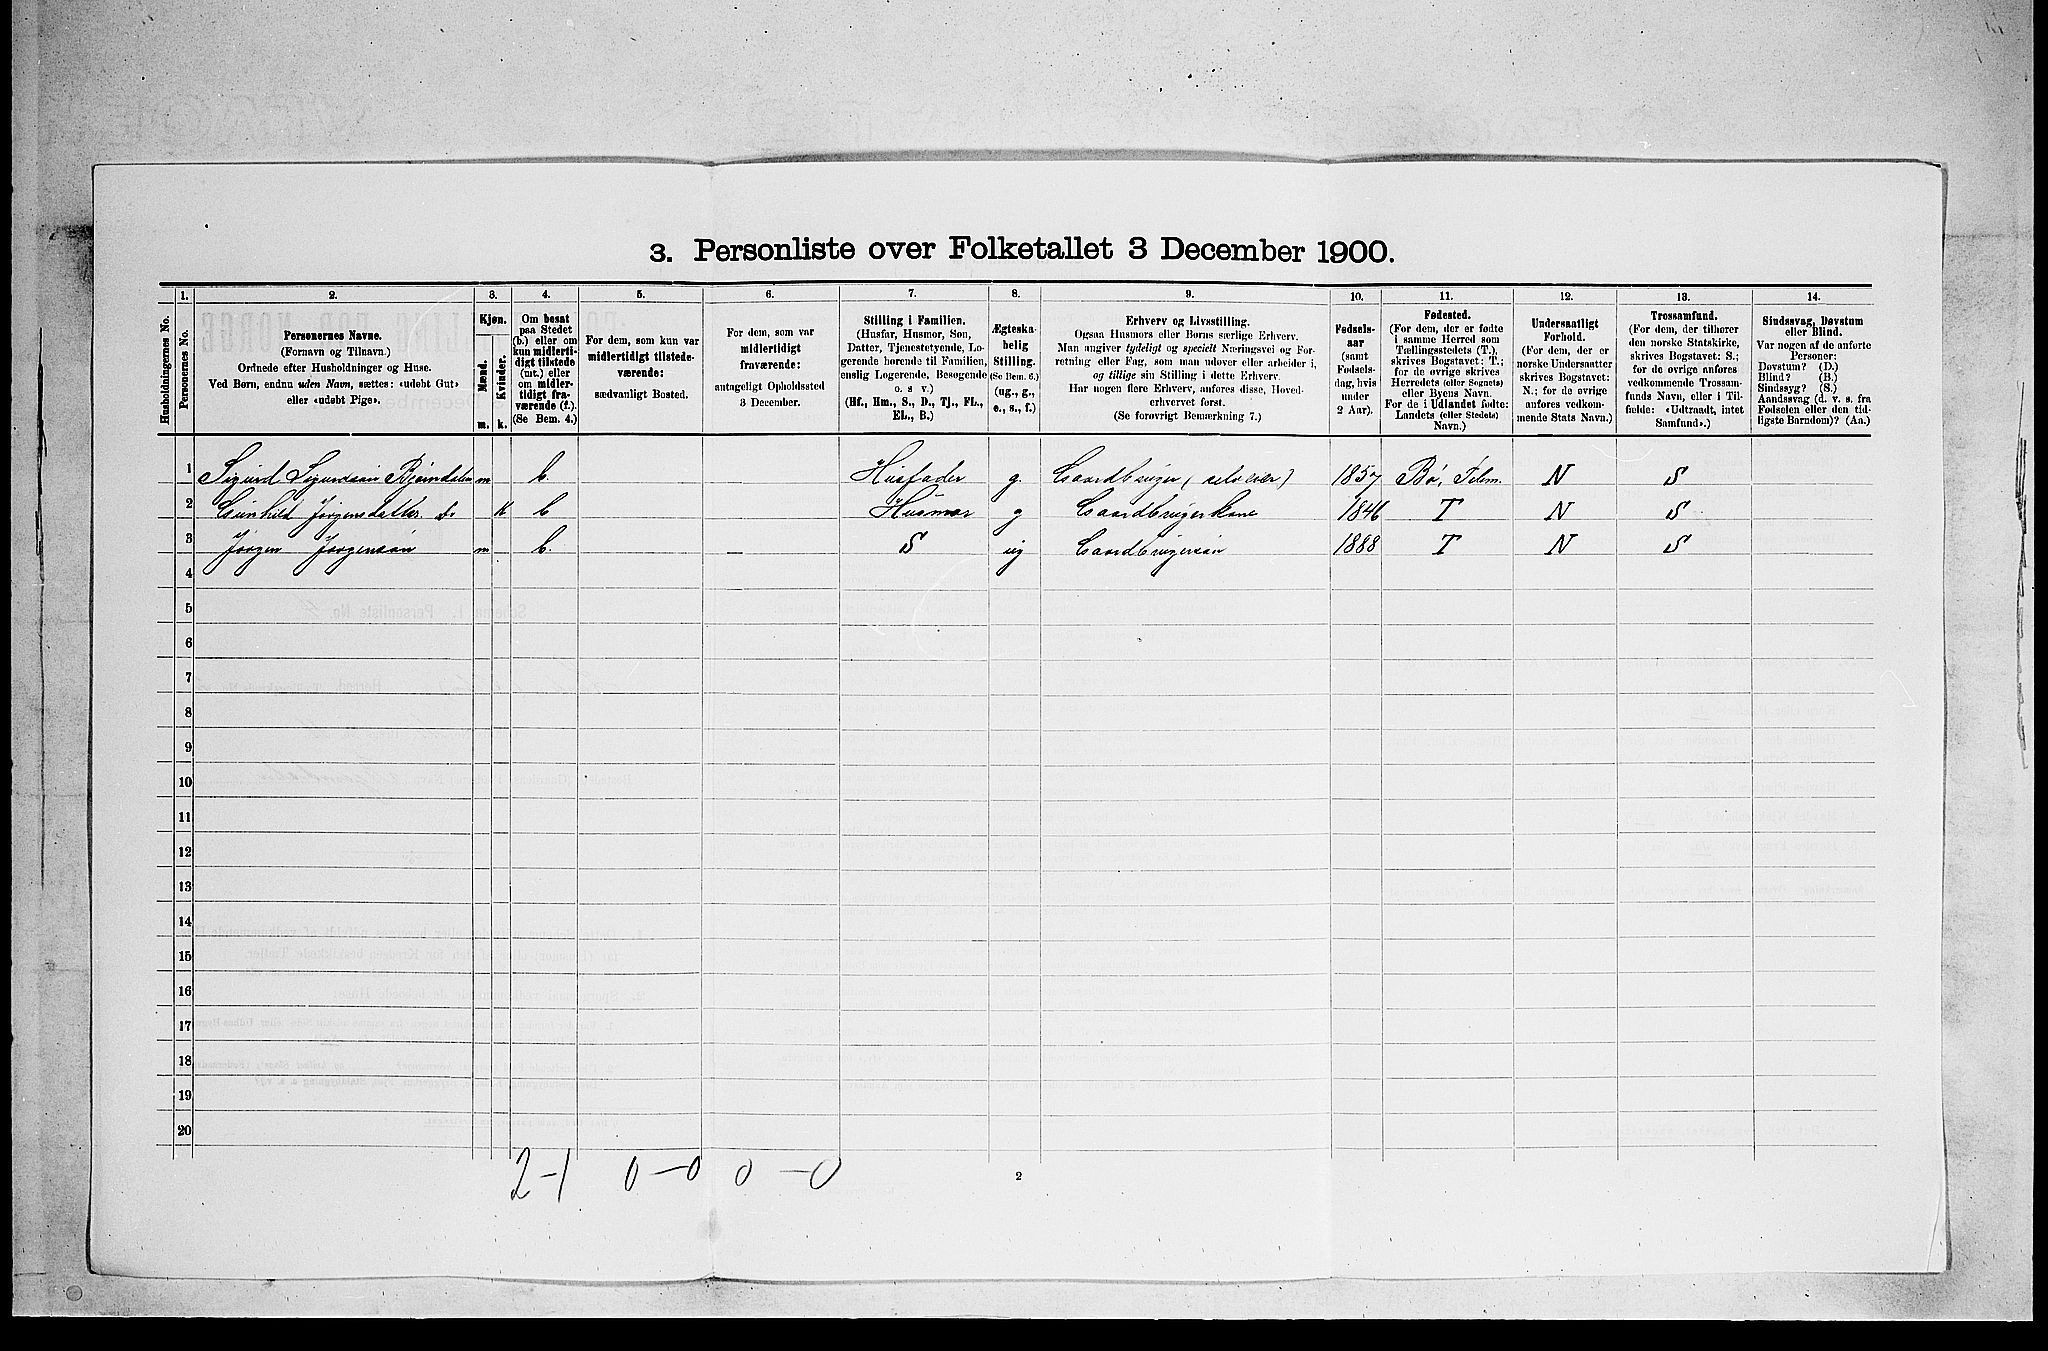 3. Personliste over Folketallet 3 December 1900.
1. 2. 3. 4. 5. 6. 7. 8. 9. 10. 11. 12. 13. 14.
Husholdningernes No.
Personernes No.
Personernes Navne.
(Fornavn og Tilnavn.)
Ordnede efter Husholdninger og Huse.
Ved Børn, endnu uden Navn, sættes: «udøbt Gut»
eller «udøbt Pige».
Kjøn.
Mænd.
Kvinder.
m. k.
Om bosat
paa Stedet
(b.) eller om
kun midlerti-
digt tilstede
(mt.) eller
om midler-
tidigt fra-
værende (f.).
(Se Bem. 4.)
For dem, som kun var
midlertidigt tilstede-
værende:
sædvanligt Bosted.
For dem, som var
midlertidigt
fraværende:
antageligt Opholdssted
3 December.
Stilling i Familien.
(Husfar, Husmor, Søn,
Datter, Tjenestetyende, Lo-
gerende hørende til Familien,
enslig Logerende, Besøgende
o. s v.)
(Hf., Hm., S., D., Tj., FL.,
EL., B.)
Ægteska-
belig
Stilling.
(Se Bem. 6.)
(ug., g.,
e., s., f.)
Erhverv og Livsstilling.
Ogsaa Husmors eller Børns særlige Erhverv.
Man angiver tydeligt og specielt Næringsvei og For-
retning eller Fag, som man udøver eller arbeider i,
og tillige sin Stilling i dette Erhverv.
Har nogen flere Erhverv, anføres disse, Hoved-
erhvervet først.
(Se forøvrigt Bemærkning 7.)
Fødsels-
aar
(samt
Fødsels-
dag, hvis
under
2 Aar).
Fødested.
(For dem, der er fødte
i samme Herred som
Tællingsstedets (T.),
skrives Bogstavet: T.;
for de øvrige skrives
Herredets (eller Sognets)
eller Byens Navn.
For de i Udlandet fødte:
Landets (eller Stedets)
Navn.)
Undersaatligt
Forhold.
(For dem, der er
norske Undersaatter
skrives Bogstavet:
N.; for de øvrige
anføres vedkom-
mende Stats Navn.)
Trossamfund.
(For dem, der tilhører
den norske Statskirke,
skrives Bogstavet: S.;
for de øvrige anføres
vedkommende Trossam-
funds Navn, eller i Til-
fælde: «Udtraadt, intet
Samfund».)
Sindssvag, Døvstum
eller Blind.
Var nogen af de anførte
Personer:
Døvstum? (D.)
Blind? (B.)
Sindssyg? (S.)
Aandssvag (d. v. s. fra
Fødselen eller den tid-
ligste Barndom)? (Aa.)
1 Sigurd Sigurdsøn Bjørndalen m b. Husfader g. Gaardbruger (selveier) 1857 Bø, Telem. N S
2 Gunhild Jørgensdatter Do K b Husmor g Gaardbrugerkone 1846 T N S
3 Jørgen Jørgensøn m b. – S ug Gaardbrugersøn 1888 T N S
4
5
6
7
8
9
10
11
12
13
14
15
16
17
18
19
20
2–1 0–0 0–0
2